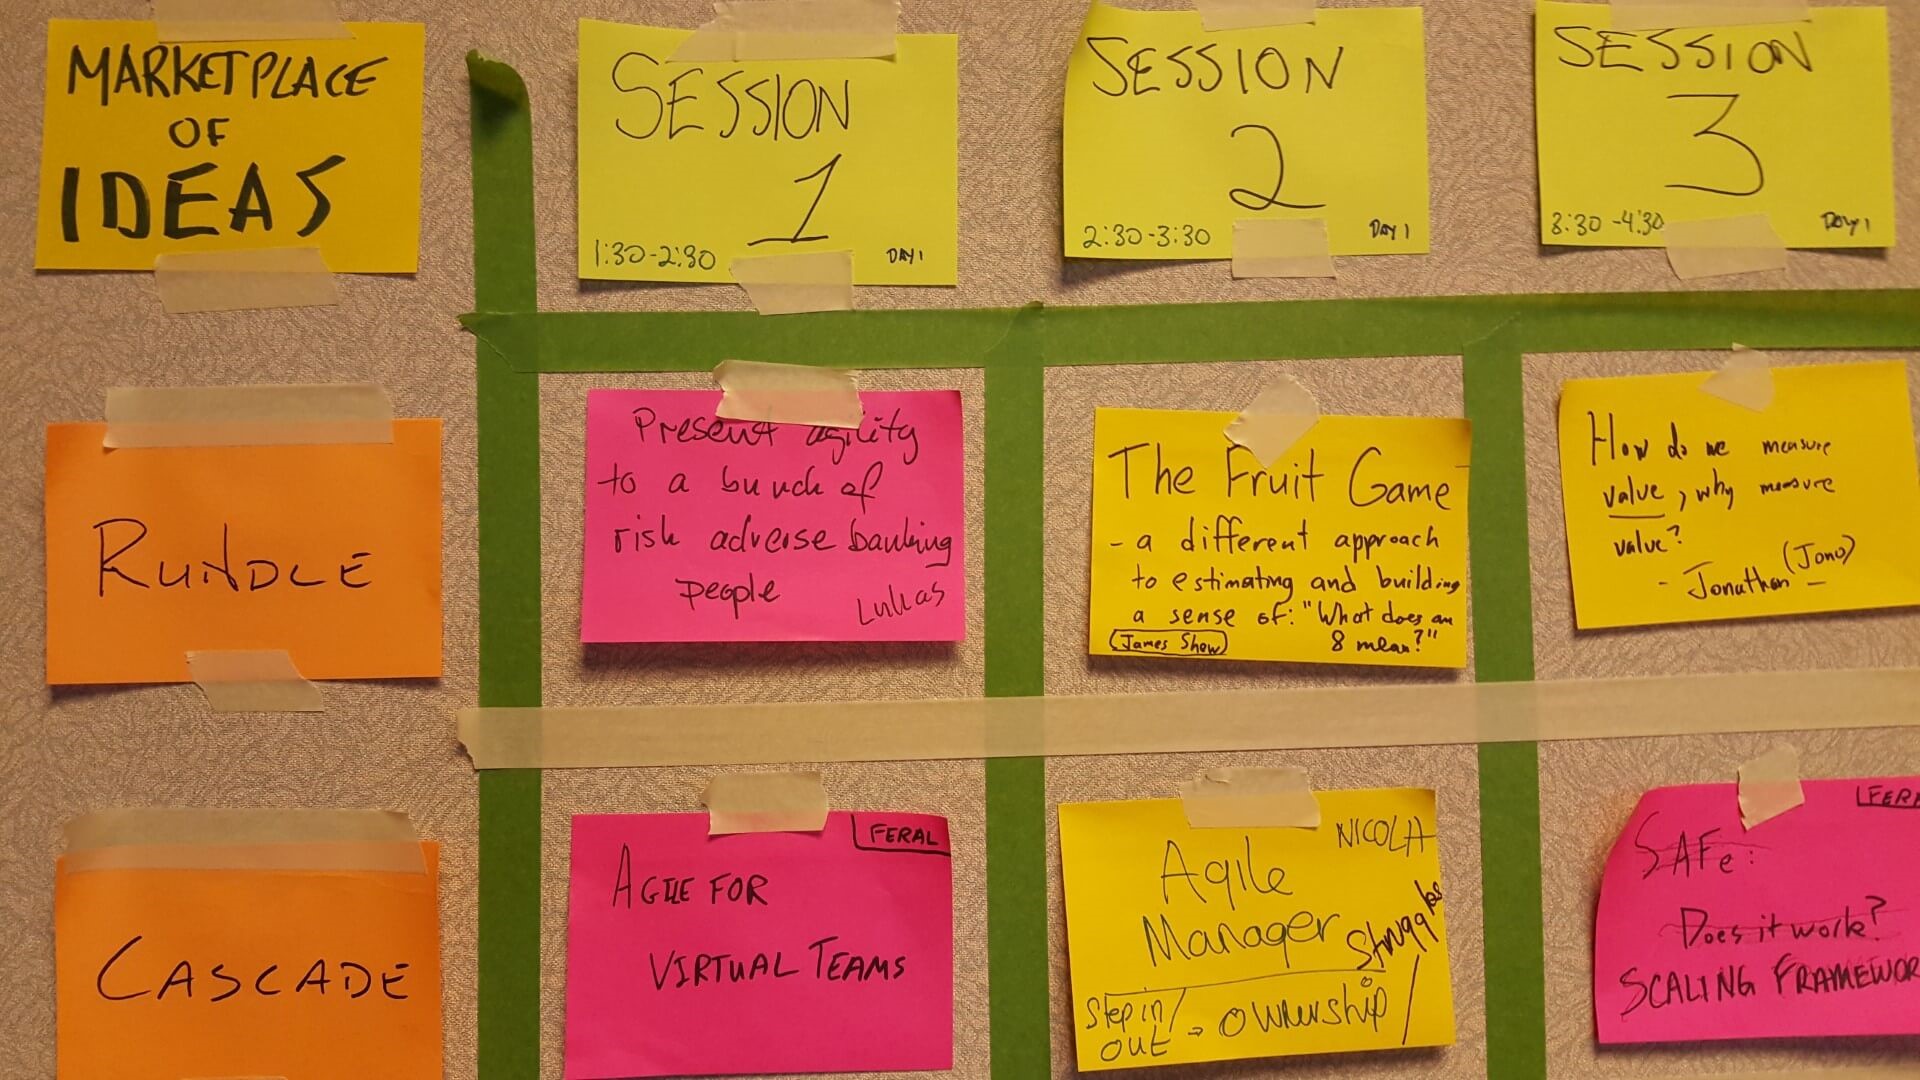 MARKETPLACE
OF
IDEAS
SESSION
1
1:30-2:30
DAY 1
SESSION
2
2:30-3:30
DAY 1
SESSION
3
3:30-4:30
DAY 1
RUNDLE
Present agility
to a bunch of
risk adverse banking
people
Lukas
The Fruit Game
- a different approach
to estimating and building
a sense of: "What does an
8 mean?"
James Shaw
How do we measure
value, why measure
value?
- Jonathan (Jono)
CASCADE
FERAL
AGILE FOR
VIRTUAL TEAMS
NICOLA
Agile
Manager
Struggles
Step in/
out → ownership/
FER
SAFe:
Does it work?
SCALING FRAMEWOR